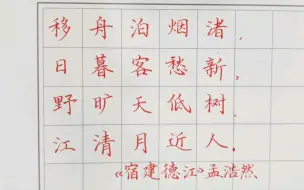 移舟泊烟渚，
日暮客愁新。
野旷天低树，
江清月近人。
《宿建德江》孟浩然